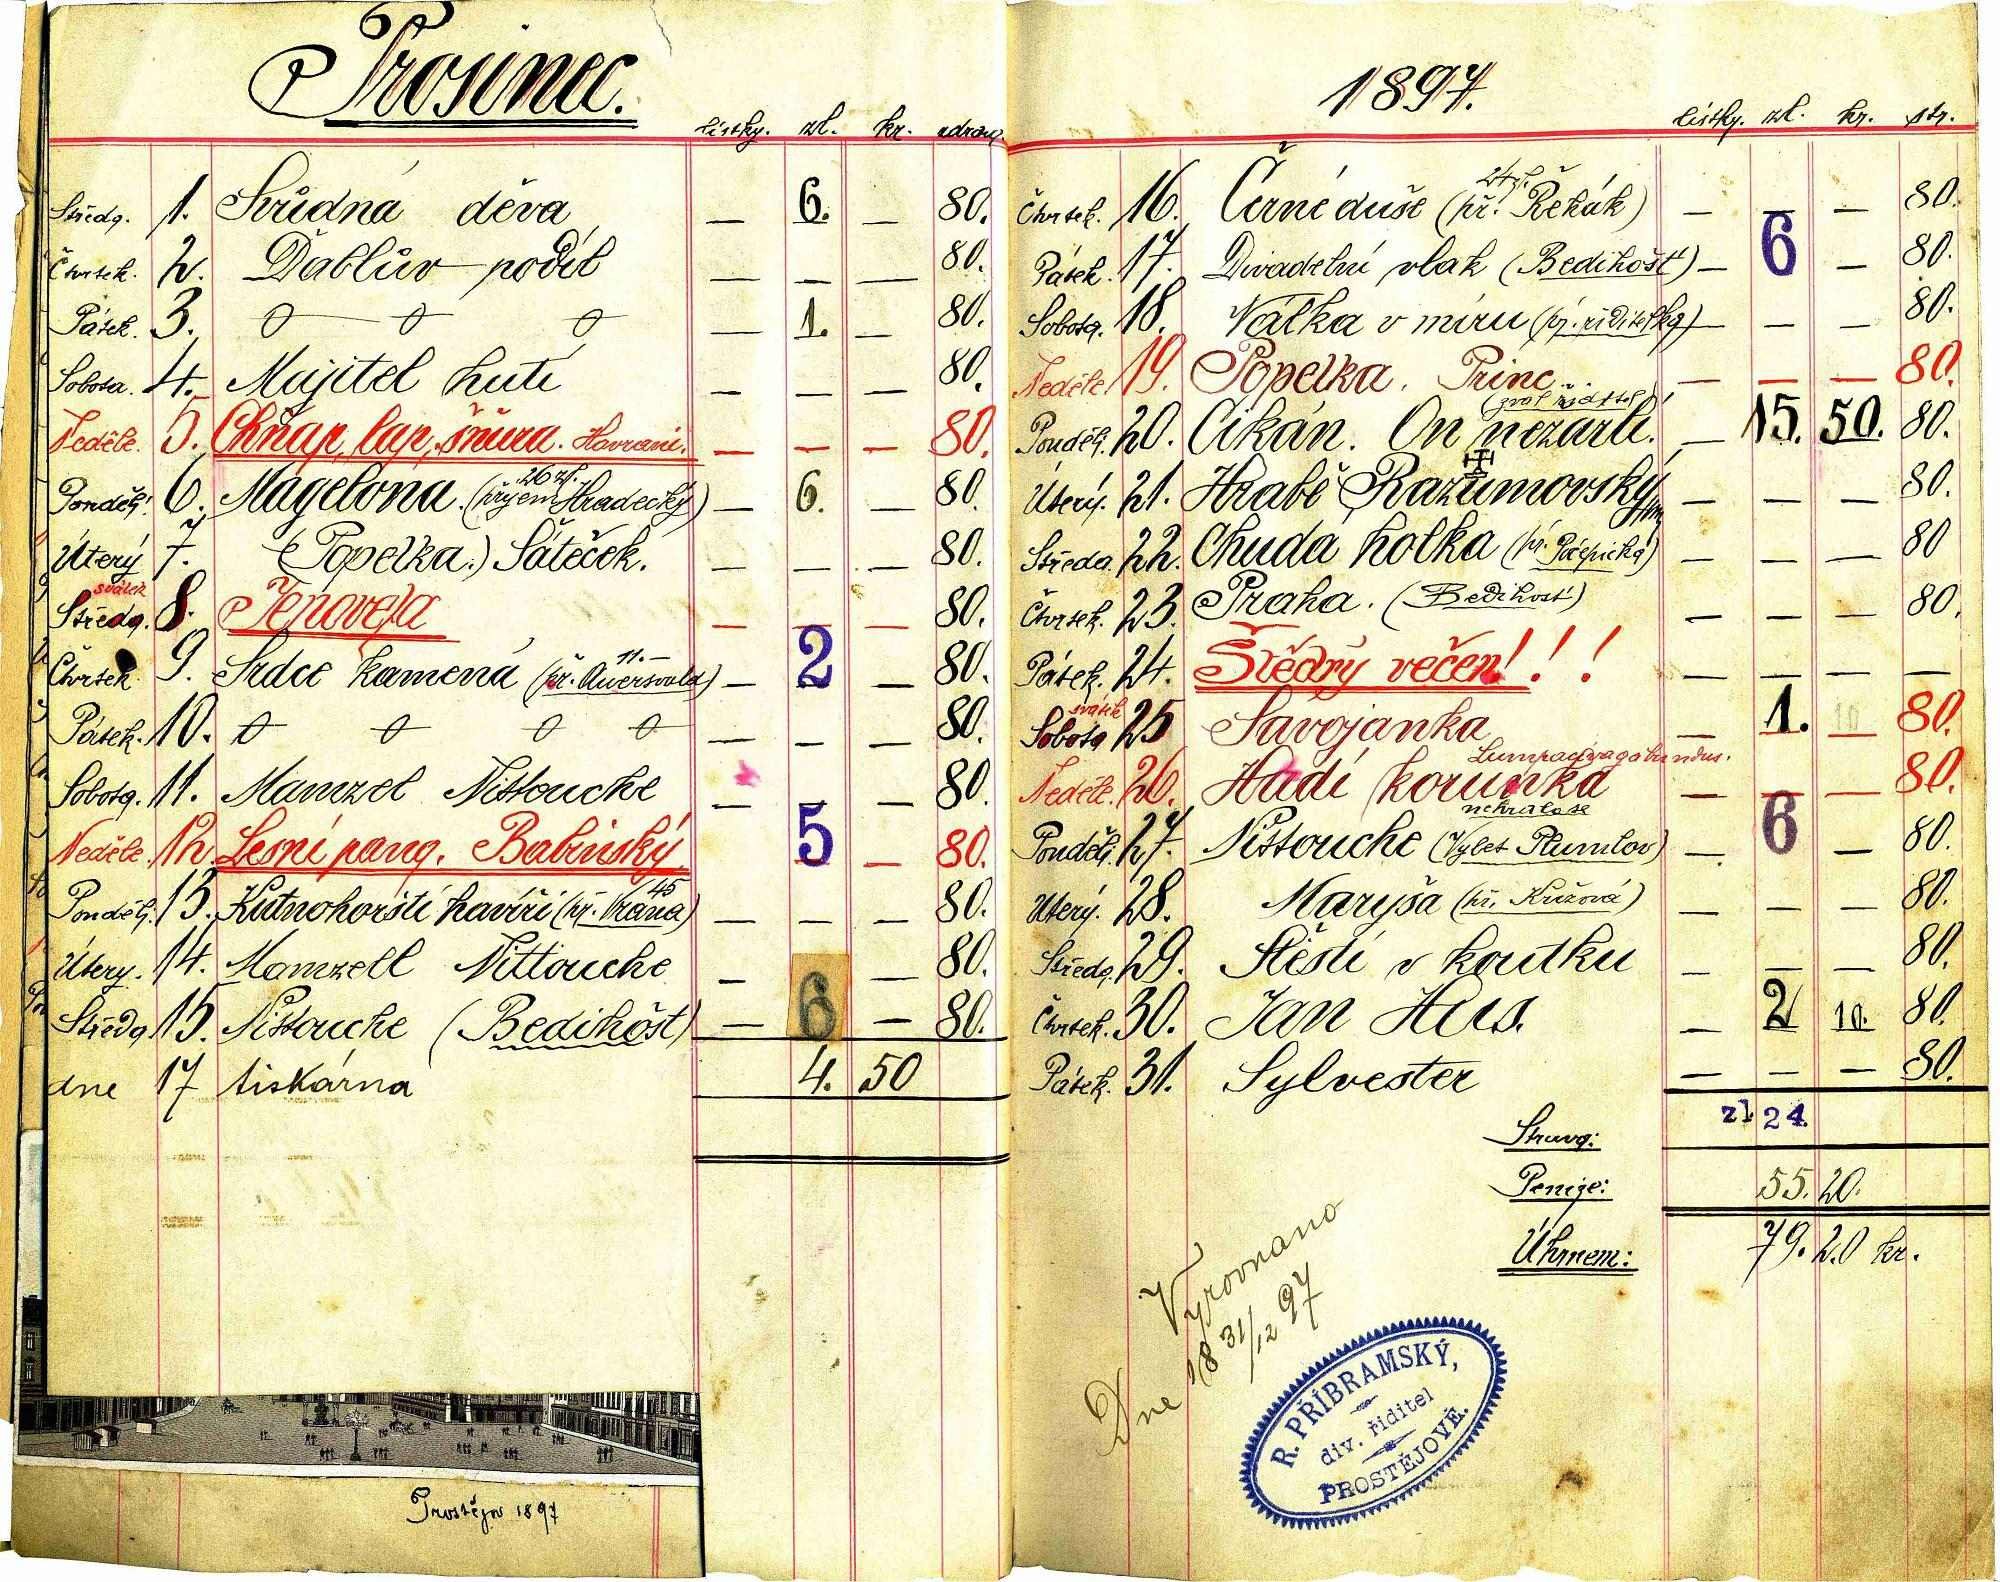 Prosinec.
lístky. zl. kr. zdrav.
Středa. 1. Svůdná děva — 6. — 80.
Čtvrtek. 2. Ďáblův podíl — — — 80.
Pátek. 3. — 1. — 80.
Sobota. 4. Majitel hutí — — — 80.
Neděle. 5. Chňap, lap, šňůra. Havrani. — — — 80.
26 zl.
Ponděl. 6. Magelona. (příjem Hradecký) — 6. — 80.
Úterý 7. (Popelka.) Šáteček. — — — 80.
svátek
Středa. 8. Jenovefa — — — 80.
11.—
Čtvrtek 9. Srdce kamená (př. Auersvald) — 2 — 80.
Pátek. 10. — — — 80.
Sobota. 11. Mamzel Nitouche — — — 80.
Neděle. 12. Lesní pana. Babinský — 5 — 80.
45
Ponděl. 13. Kutnohorští havíři (př. Vrána) — — — 80.
Úterý. 14. Mamzell Nittouche — — 80.
Středa 15. Nitouche (Bedihošt) — 6 — 80.
dne 17 tiskárna 4. 50
Prostějov 1897
1897.
lístky. zl. kr. str.
24 zl.
Čtvrtek. 16. Černé duše (př. Řehák) — — — 80.
Pátek. 17. Divadelní vlak (Bedihošť) — 6 — 80.
Sobota. 18. Válka v míru (př. ředitelky) — — — 80.
Neděle. 19. Popelka. Princ — — — 80.
Ponděl. 20. Cikán. On nežárlí. — 15. 50. 80.
Úterý. 21. Hrabě Razumovský — — — 80.
Středa. 22. Chudá holka (př. Počepická) — — — 80
Čtvrtek. 23. Praha. (Bedihošť) — — — 80.
Pátek. 24. Štědrý večer!!! — — — —
svátek
Sobota 25 Savojanka — 1. 10 80.
Lumpacivagabundus.
Neděle. 26. Hadí korunka — — — 80.
nehrálo se
Ponděl. 27. Nitouche (Výlet Plumlov) — 6 — 80.
Úterý. 28. Maryša (př. Křížová) — — — 80.
Středa. 29. Štěstí v koutku — — — 80.
Čtvrtek. 30. Jan Hus. — 2 10. 80.
Pátek. 31. Sylvester — — — 80.
Strava: zl 24.
Peníze: 55. 20.
Úhrnem: 79. 20 kr.
Vyrovnáno
Dne 18 31/12 97
R. PŘÍBRAMSKÝ,
div. řiditel
PROSTĚJOVĚ.